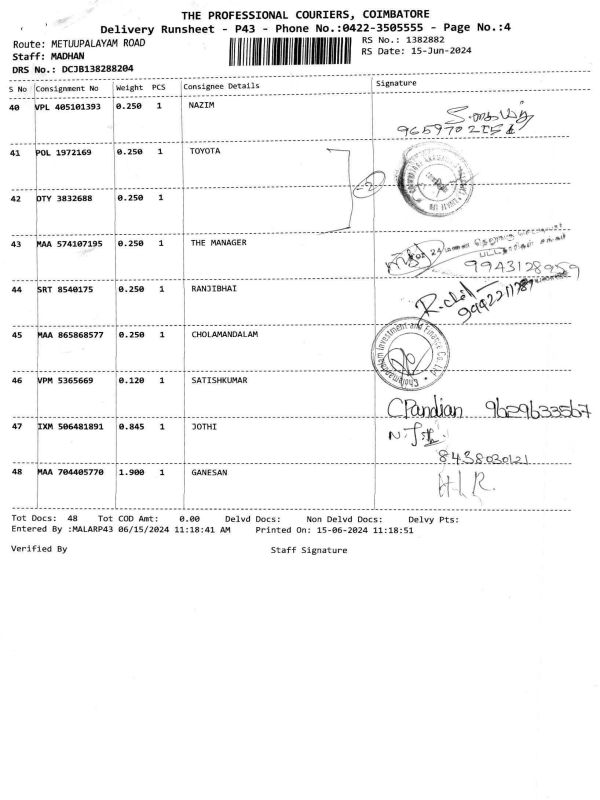 THE PROFESSIONAL COURIERS, COIMBATORE
Delivery Runsheet - P43 - Phone No.:0422-3505555 - Page No.:4
Route: METUUPALAYAM ROAD RS No.: 1382882
Staff: MADHAN RS Date: 15-Jun-2024
DRS No.: DCJB138288204
S No Consignment No Weight PCS Consignee Details Signature
40 VPL 405101393 0.250 1 NAZIM
41 POL 1972169 0.250 1 TOYOTA
-2
42 OTY 3832688 0.250 1
43 MAA 574107195 0.250 1 THE MANAGER
24 மனை தெலுங்கு
சங்கம்
9943128959
44 SRT 8540175 0.250 1 RANJIBHAI
45 MAA 865868577 0.250 1 CHOLAMANDALAM
Cholamandalam Investment and Finance Co. Ltd
46 VPM 5365669 0.120 1 SATISHKUMAR
CPandian 9629633567
47 IXM 506481891 0.845 1 JOTHI
8438030121
48 MAA 704405770 1.900 1 GANESAN
Tot Docs: 48 Tot COD Amt: 0.00 Delvd Docs: Non Delvd Docs: Delvy Pts:
Entered By :MALARP43 06/15/2024 11:18:41 AM Printed On: 15-06-2024 11:18:51
Verified By Staff Signature